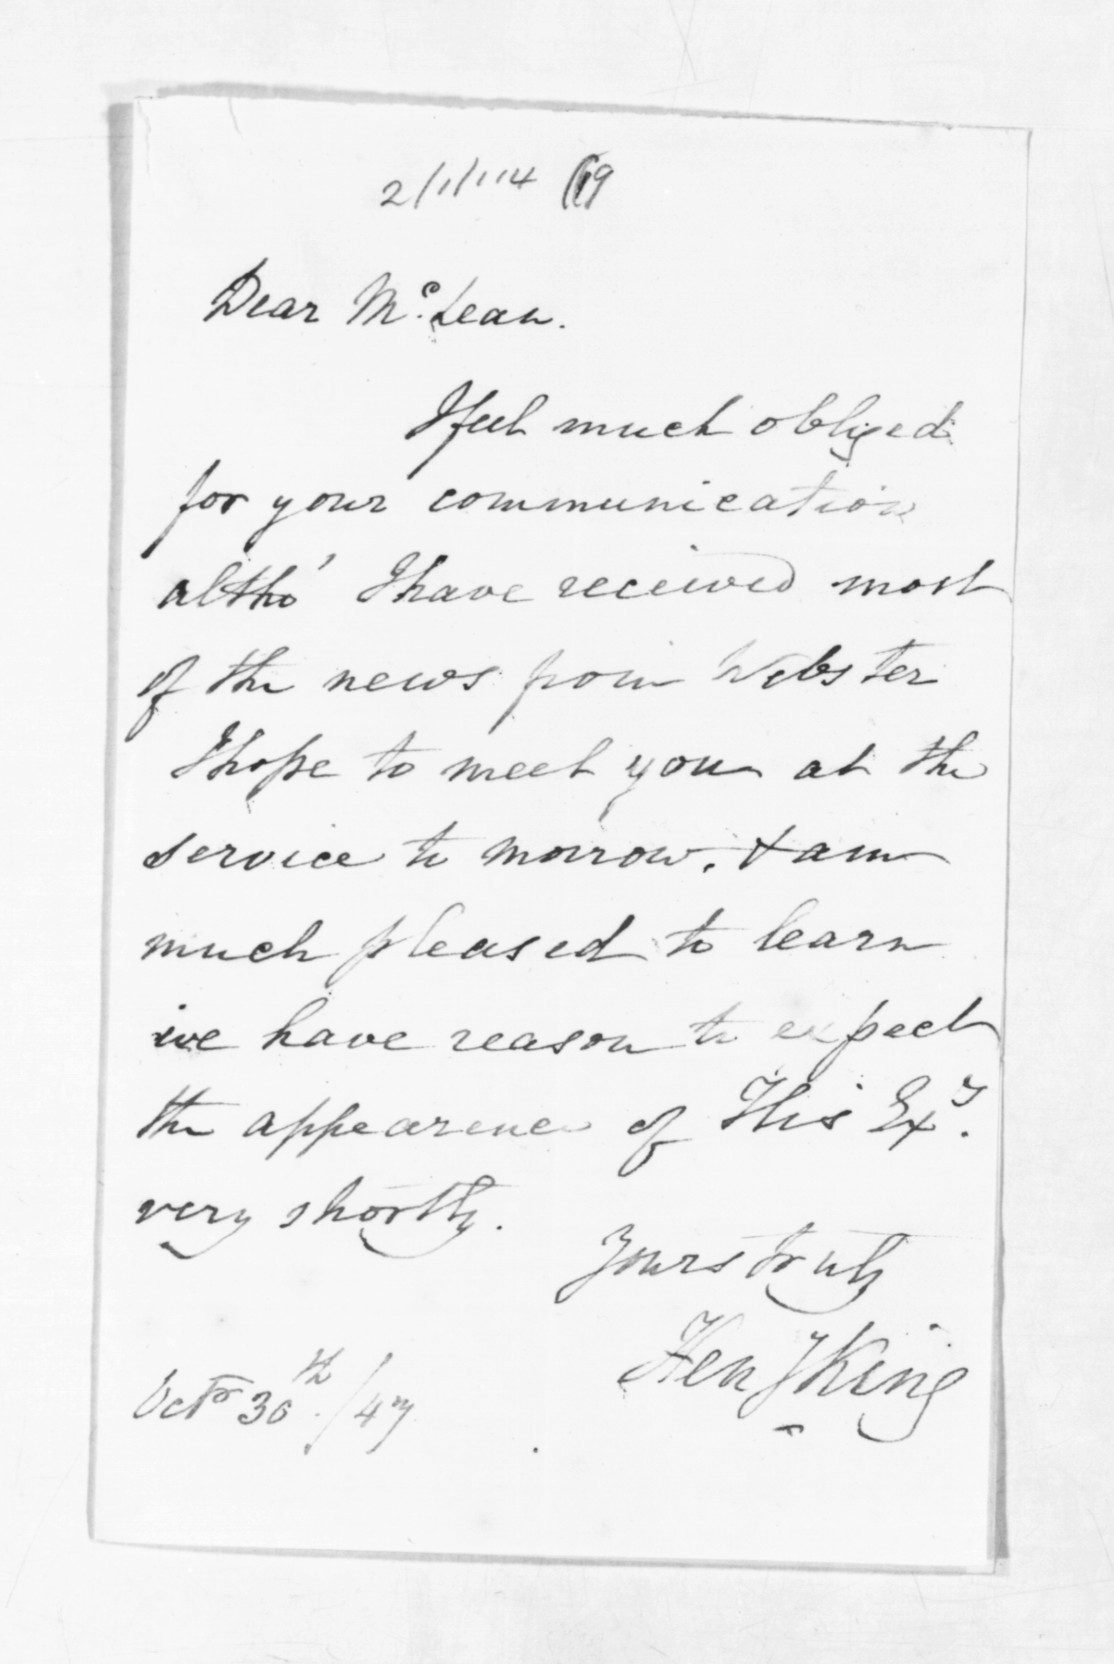 Dear McLean.
I feel much obliged
for your communication
altho' I have received most
of the news from Webster
I hope to meet you at the
service to morrow. & am
much pleased to learn
we have reason to expect
the appearence of His Exy.
very shortly.
Yours truly
Hen King
Octr 30th /47